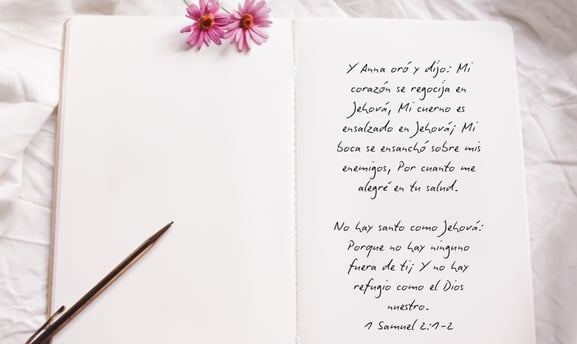 Y Anna oró y dijo: Mi
corazón se regocija en
Jehová, Mi cuerno es
ensalzado en Jehová; Mi
boca se ensanchó sobre mis
enemigos, Por cuanto me
alegré en tu salud.
No hay santo como Jehová:
Porque no hay ninguno
fuera de ti; Y no hay
refugio como el Dios
nuestro.
1 Samuel 2:1-2